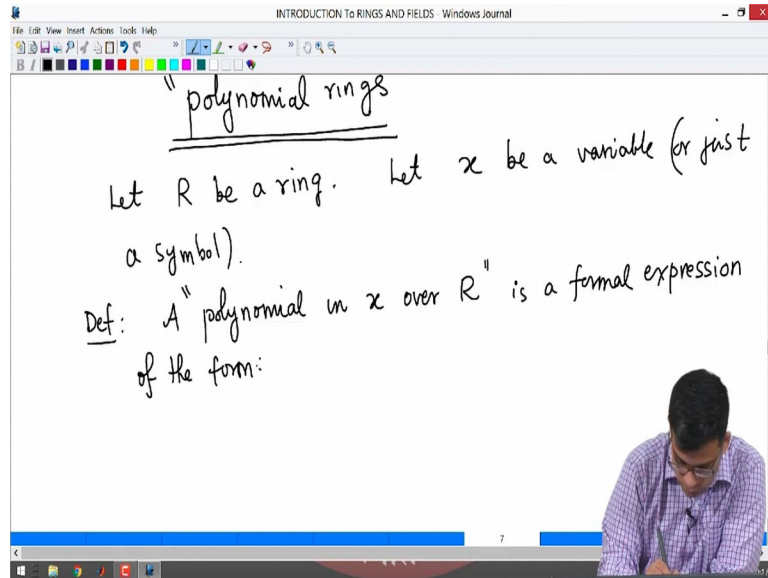 INTRODUCTION To RINGS AND FIELDS - Windows Journal
File Edit View Insert Actions Tools Help
"polynomial rings
Let R be a ring. Let x be a variable (or just
a symbol).
Def: A "polynomial in x over R" is a formal expression
of the form:
7